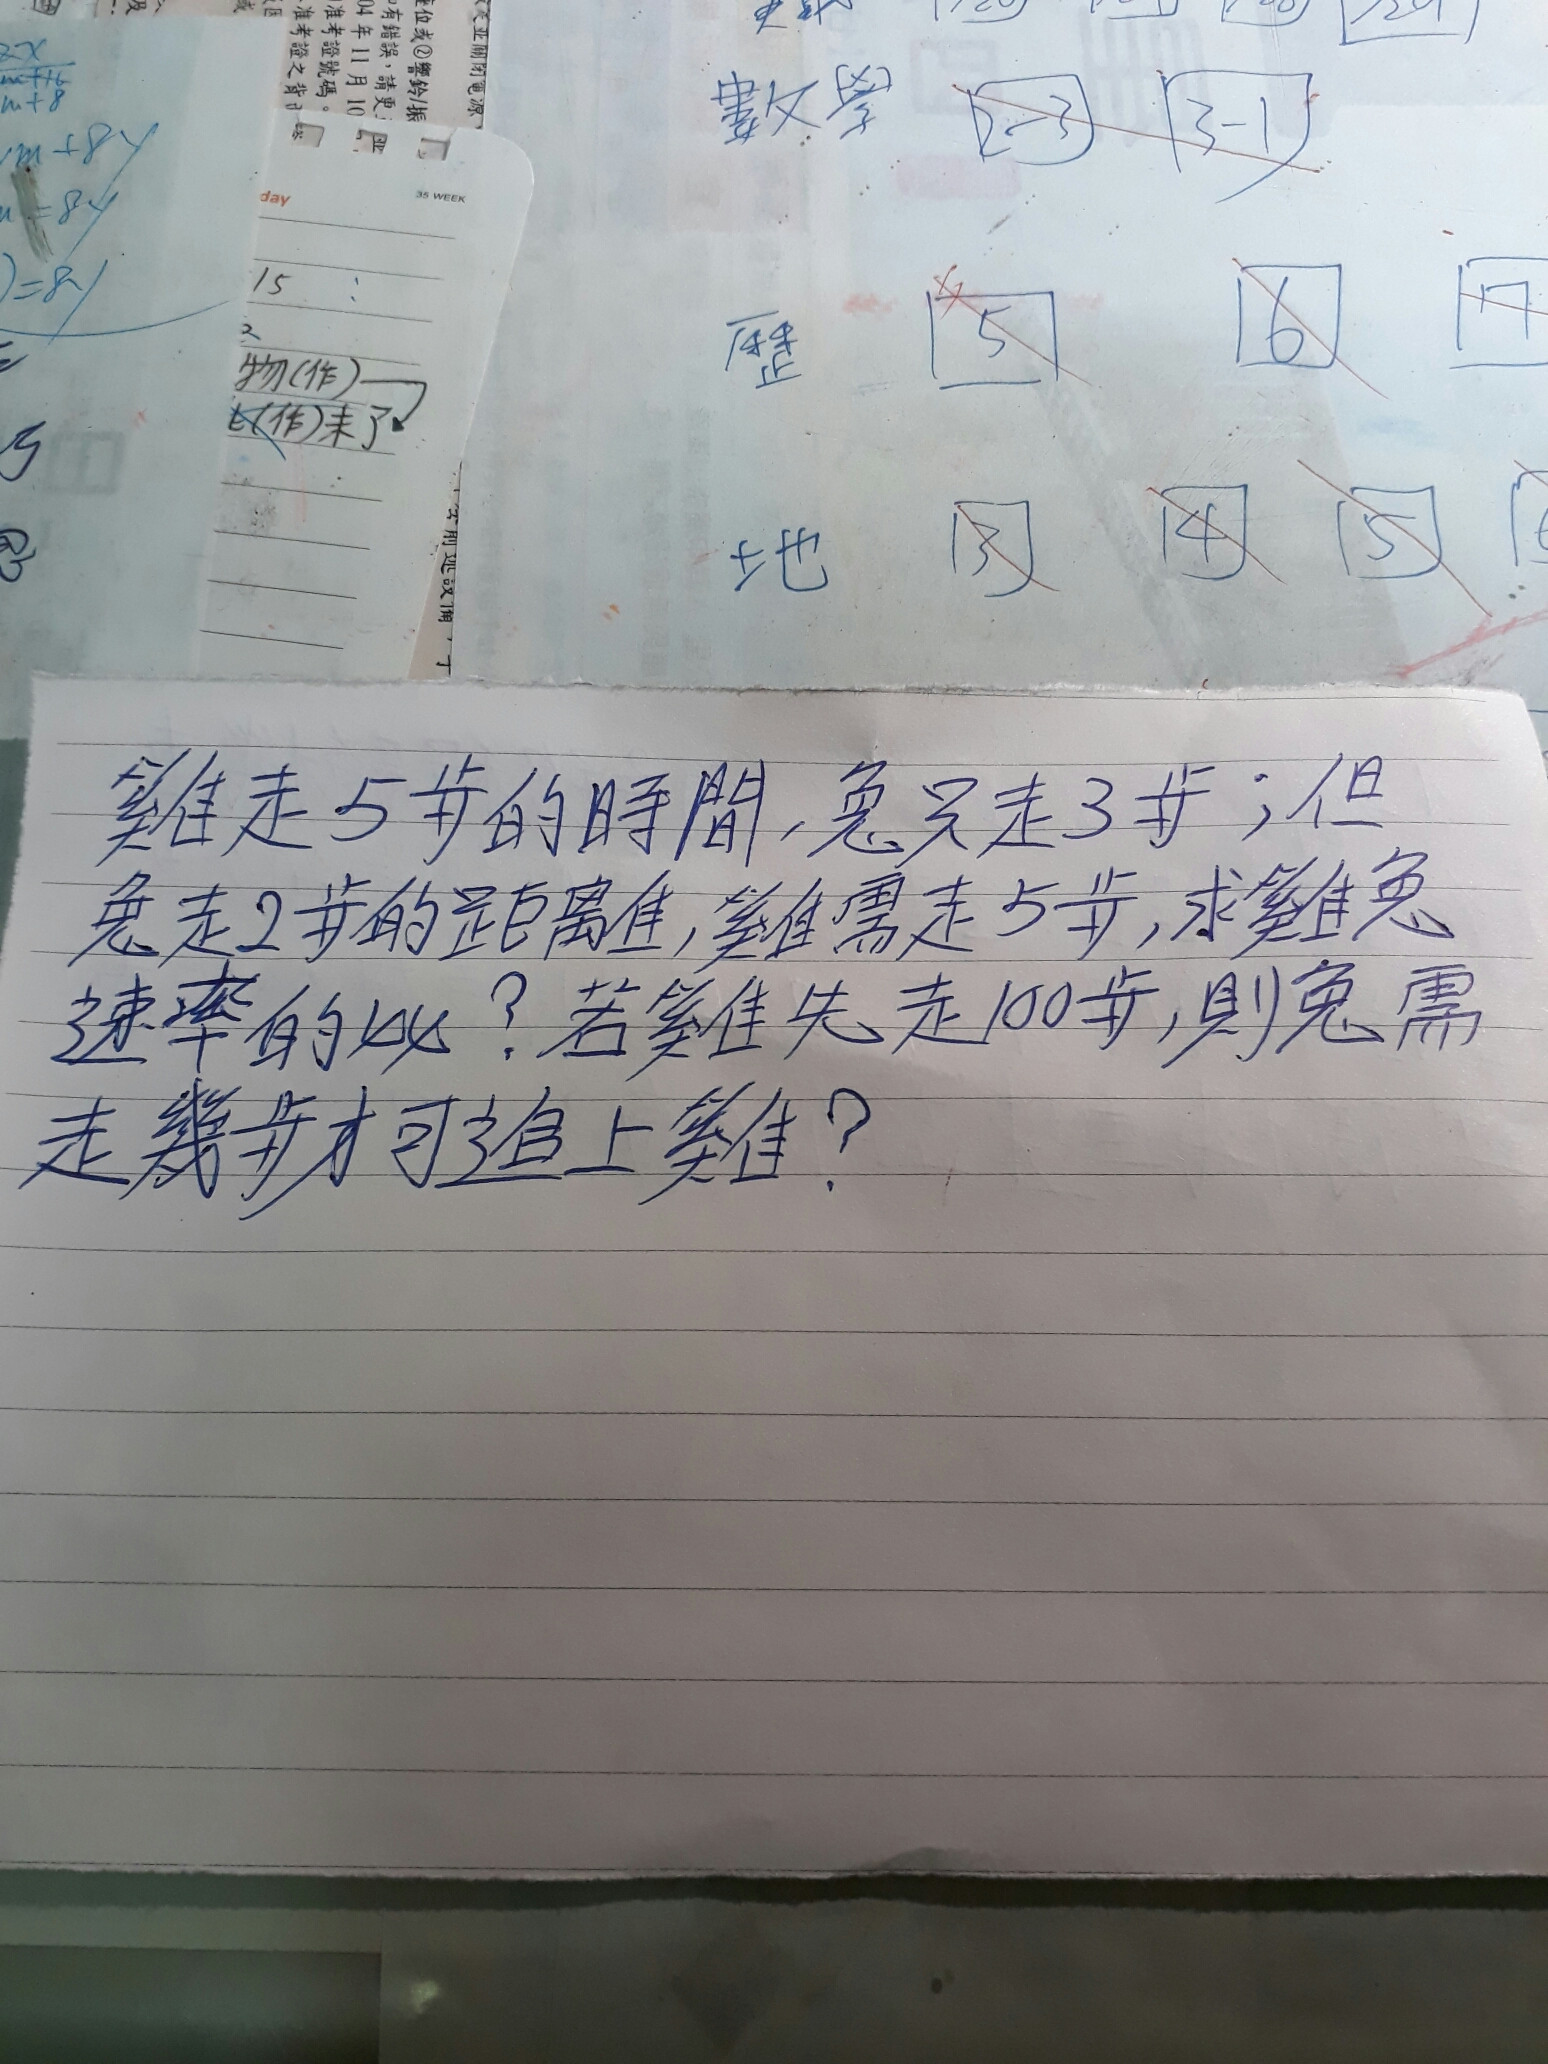 數學 2-3 3-1
歷 5 6
地 3 4 5
day 35 WEEK
15 :
物(作)
(作)未了
04 年 11 月 10
准考證號碼。
准考證之背
雞走5步的時間,兔只走3步;但
兔走2步的距離,雞需走5步,求雞兔
速率的比?若雞先走100步,則兔需
走幾步才可追上雞?